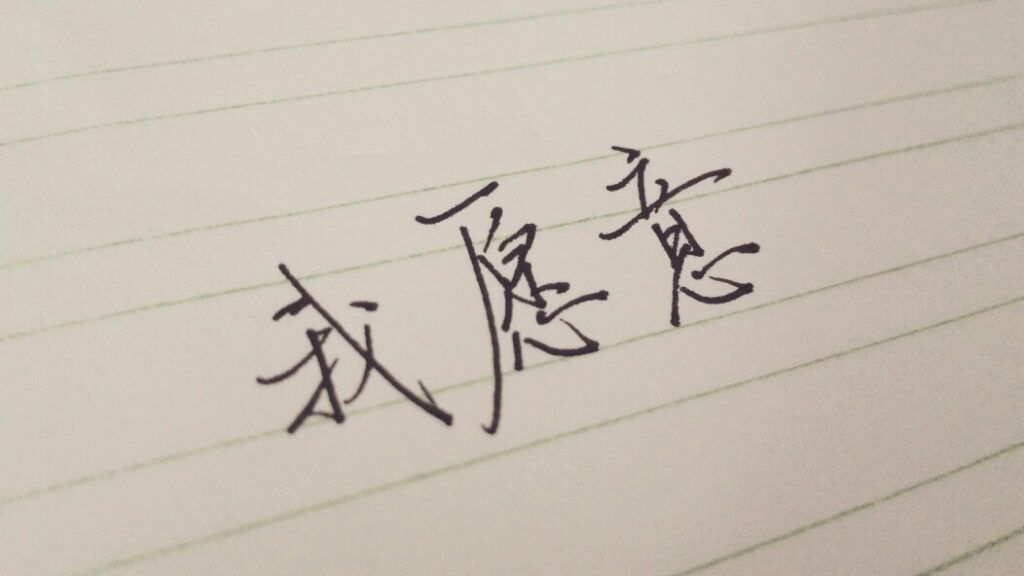 我愿意